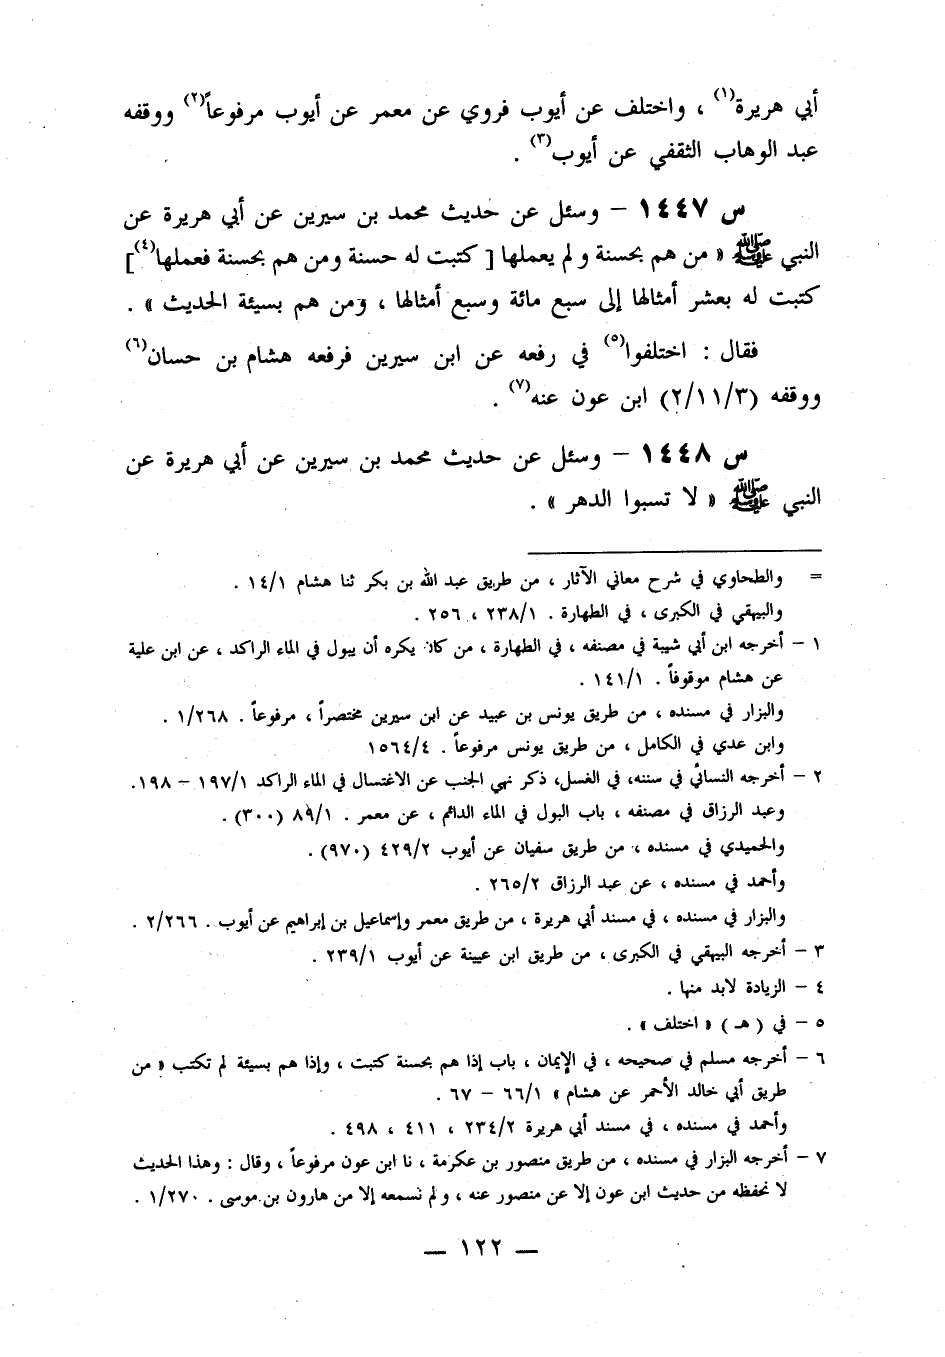 أبي هريرة(١) ، واختلف عن أيوب فروي عن معمر عن أيوب مرفوعاً(٢) ووقفه
عبد الوهاب الثقفي عن أيوب(٣) .
س ١٤٤٧ – وسئل عن حديث محمد بن سيرين عن أبي هريرة عن
النبي ﷺ « من هم بحسنة ولم يعملها [ كتبت له حسنة ومن هم بحسنة فعملها(٤)]
كتبت له بعشر أمثالها إلى سبع مائة وسبع أمثالها ، ومن هم بسيئة الحديث » .
فقال : اختلفوا(٥) في رفعه عن ابن سيرين فرفعه هشام بن حسان(٦)
ووقفه (٢/١١/٣) ابن عون عنه(٧) .
س ١٤٤٨ – وسئل عن حديث محمد بن سيرين عن أبي هريرة عن
النبي ﷺ « لا تسبوا الدهر » .
= والطحاوي في شرح معاني الآثار ، من طريق عبد الله بن بكر ثنا هشام ١٤/١ .
والبيهقي في الكبرى ، في الطهارة . ٢٣٨/١ ، ٢٥٦ .
١ – أخرجه ابن أبي شيبة في مصنفه ، في الطهارة ، من كان يكره أن يبول في الماء الراكد ، عن ابن علية
عن هشام موقوفاً . ١٤١/١ .
والبزار في مسنده ، من طريق يونس بن عبيد عن ابن سيرين مختصراً ، مرفوعاً . ١/٢٦٨ .
وابن عدي في الكامل ، من طريق يونس مرفوعاً . ١٥٦٤/٤
٢ – أخرجه النسائي في سننه، في الغسل، ذكر نهي الجنب عن الاغتسال في الماء الراكد ١٩٧/١ – ١٩٨.
وعبد الرزاق في مصنفه ، باب البول في الماء الدائم ، عن معمر . ٨٩/١ (٣٠٠) .
والحميدي في مسنده ، من طريق سفيان عن أيوب ٤٢٩/٢ (٩٧٠) .
وأحمد في مسنده ، عن عبد الرزاق ٢٦٥/٢ .
والبزار في مسنده ، في مسند أبي هريرة ، من طريق معمر وإسماعيل بن إبراهيم عن أيوب . ٢/٢٦٦ .
٣ – أخرجه البيهقي في الكبرى ، من طريق ابن عيينة عن أيوب ٢٣٩/١ .
٤ – الزيادة لابد منها .
٥ – في ( هـ ) « اختلف » .
٦ – أخرجه مسلم في صحيحه ، في الإيمان ، باب إذا هم بحسنة كتبت ، وإذا هم بسيئة لم تكتب « من
طريق أبي خالد الأحمر عن هشام » ٦٦/١ – ٦٧ .
وأحمد في مسنده ، في مسند أبي هريرة ٢٣٤/٢ ، ٤١١ ، ٤٩٨ .
٧ – أخرجه البزار في مسنده ، من طريق منصور بن عكرمة ، نا ابن عون مرفوعاً ، وقال : وهذا الحديث
لا نحفظه من حديث ابن عون إلا عن منصور عنه ، ولم نسمعه إلا من هارون بن موسى . ١/٢٧٠ .
— ١٢٢ —